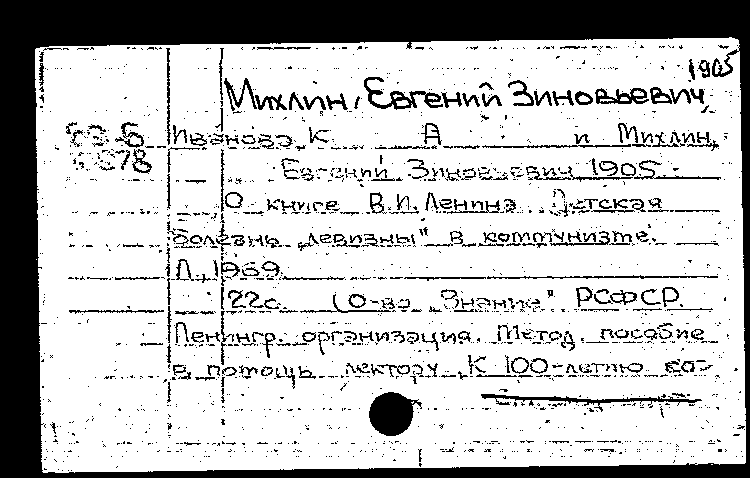 1905
Михлин, Евгений Зиновьевич
Иванова, К. А. и Михлин,
Евгений Зиновьевич 1905.
О книге В.И. Ленина Детская
болезнь „левизны" в коммунизме.
Л., 1969.
22с. (О-во „Знание" РСФСР.
Ленингр. организация. Метод. пособие
в помощь лектору. К 100-летию со